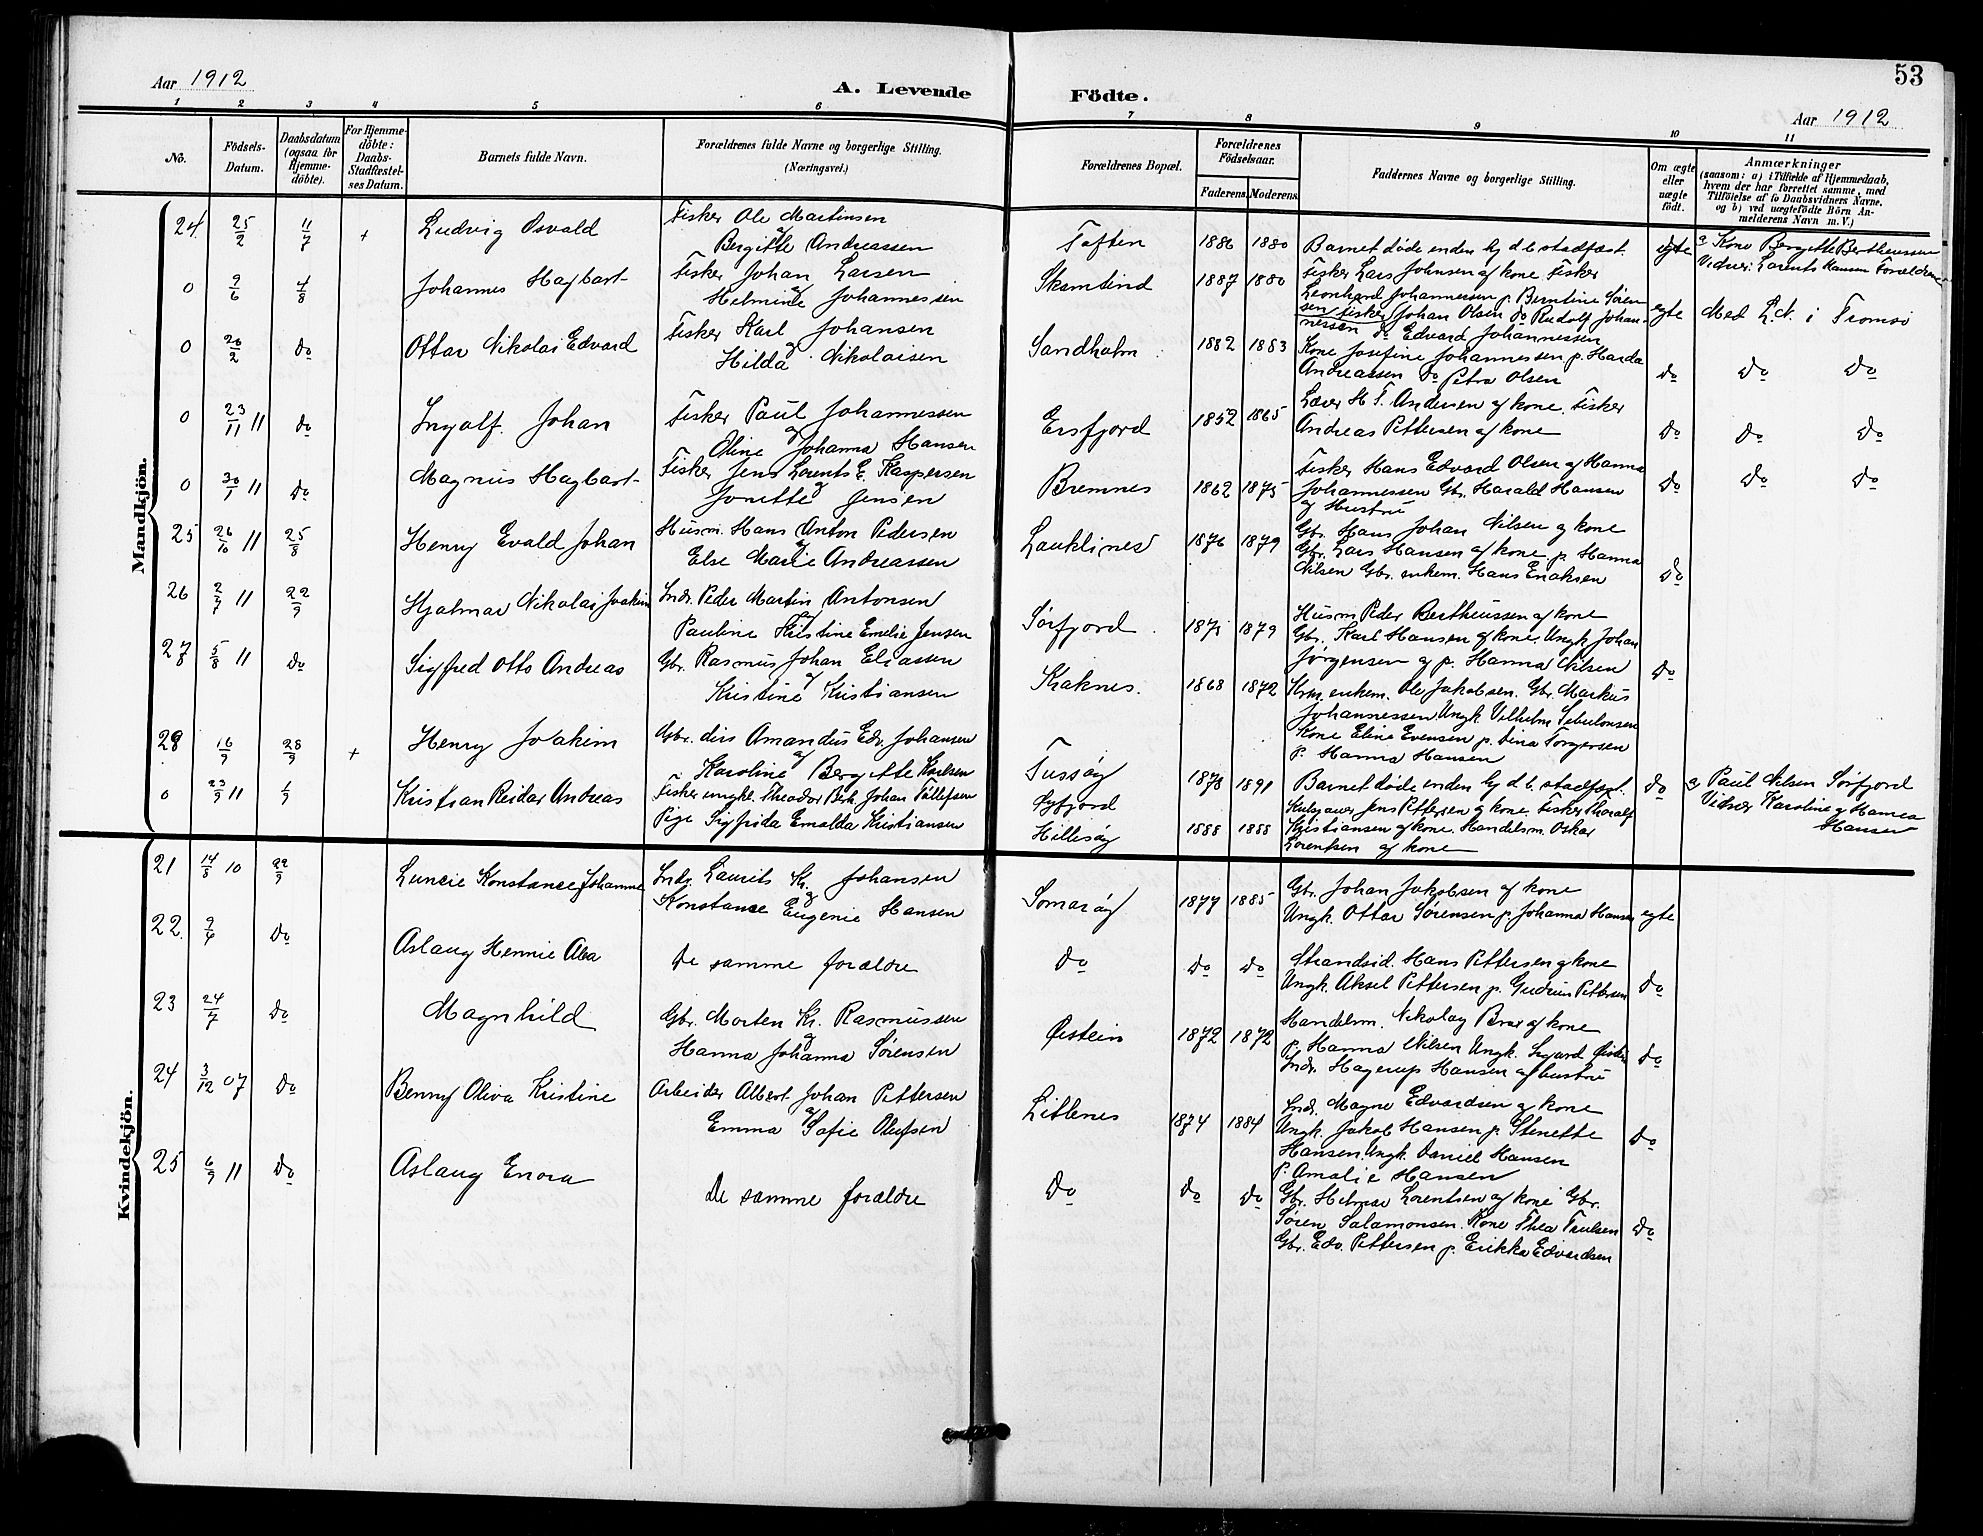 53
Aar 1912
A. Levende Födte.
Aar 1912
1 2 3 4 5 6 7 8 9 10 11
No.
Födsels-
Datum.
Daabsdatum
(ogsaa for
Hjemme-
döbte).
For Hjemme-
döbte:
Daabs-
Stadfæstel-
ses Datum.
Barnets fulde Navn.
Forældrenes fulde Navne og borgerlige Stilling.
(Næringsvei.)
Forældrenes Bopæl.
Forældrenes
Födselsaar.
Faderens. Moderens.
Faddernes Navne og borgerlige Stilling.
Om ægte
eller
uægte
födt.
Anmærkninger
(saasom: a) i Tilfælde af Hjemmedaab,
hvem der har forrettet samme, med
Tilföielse af to Daabsvidners Navne,
og b) ved uægtefödte Börn An-
melderens Navn m. V.)
Mandkjön.
24 25/2 11/7 + Ludvig Osvald
Fisker Ole Martinsen
og
Bergitte Andreassen
Toften 1886 1880 Barnet døde inden Hj d b. stadfæst. egte
a Kone Bergitte Bertheussen
Vidner: Lorents Hansen Forældrene
0 9/6 4/8 Johannes Hagbart
Fisker Johan Larsen
og
Helmine Johannessen
Skamtind 1887 1880
Fisker Lars Johnsen og kone. Fisker
Leonhard Johannessen p. Berntine Sören
sen fisker Johan Olsen do Rudolf Johan-
nessen do Edvard Johannessen
egte Med L. N. i Tromsö
0 20/2 do Ottar Nikolai Edvard
Fisker Karl Johansen
og
Hilda Nikolaisen
Sandholm 1882 1883
Kone Josefine Johannessen p. Harda
Andreassen do Petra Olsen
do do do
0 23/11 11 do Ingolf Johan
Fisker Paul Johannessen
og
Oline Johanna Hansen
Ersfjord 1852 1865
Lærer H. T. Andersen og kone. Fisker
Andreas Pettersen og kone
do do do
0 30/1 11 do Magnus Hagbart
Fisker Jens Lorents E. Kaspersen
og
Jonette Jensen
Bremnes 1862 1875
Fisker Hans Edvard Olsen og Hanna
Johannessen Gbr. Harald Hansen
og Hustru
do do do
25 26/10 11 25/8 Henry Evald Johan
Husm. Hans Anton Pedersen
og
Else Marie Andreassen
Lauklines 1876 1879
Gbr. Hans Johan Nilsen og kone
Gbr. Lars Hansen og kone p. Hanna
Nilsen Gbr. enkem. Hans Enoksen
do
26 2/7 11 22/9 Hjalmar Nikolai Joakim
Indr. Peder Martin Antonsen
og
Pauline Kristine Emelie Jensen
Sörfjord 1875 1879
Husm Peder Bertheussen og kone
Gbr. Karl Hansen og kone. Ungk. Johan
Jörgensen og p. Hanna Nilsen
do
27 5/8 11 do Sigfred Otto Andreas
Gbr. Rasmus Johan Eliassen
og
Kristine Kristiansen
Kraknes. 1868 1872
Krm enkem. Ole Jakobsen. Gbr. Markus
Johannessen Ungk Vilhelm Sebulonsen
Kone Eline Evensen p. Dina Torgersen
p. Hanna Hansen
28 16/9 28/9 + Henry Joakim
Gbr. Amandus Edv. Johansen
og
Karoline Bergitte Karlsen
Tussöy 1878 1891 Barnet döde inden Hj d b. stadfæst. do
a Paul Nilsen Sörfjord
Vidner Karoline og Hanna
Hansen
0 23/9 11 1/9 Kristian Reidar Andreas
Fisker ungk. Theodor Berh. Johan Tollefsen
Pige Sigfrida Emalda Kristiansen
Hillesöy 1888 1888
Jens Pettersen og kone. Fisker Thoralf
Kristiansen og kone. Handelsm. Oskar
Lorentsen og kone
Kvindekjön.
21 14/8 10 22/9 Luncie Konstance Johanne
Indr. Laurits Kr. Johansen
og
Konstance Eugenie Hansen
Somaröy 1877 1885
Gbr. Johan Jakobsen og kone
Ungk. Ottar Sörensen p. Johanna Hansen
egte
22. 9/4 do Aslaug Hennie Alea
De samme forældre
do do do
Strandsid. Hans Pettersen og kone
Ungk. Aksel Pettersen p. Gudrun Pettersen
do
23 24/7 do Magnhild
Gbr. Morten Kr. Rasmussen
og
Hanna Johanna Sörensen
Östein 1872 1872
Handelsm. Nikolay Brox og kone
p. Hanna Nilsen Ungk. Sigurd
Indr. Hagerup Hansen og hustru
do
24 3/12 07 do Benny Oliva Kristine
Arbeider Albert Johan Pettersen
og
Emma Sofie Olufsen
Litlenes 1874 1884
Indr. Magne Edvardsen og kone
Ungk. Jakob Hansen p. Stenette
Hansen. Ungk. Daniel Hansen
p. Amalie Hansen
do
25 6/9 11 do Aslaug Enora
De samme forældre
do do do
Gbr. Helmer Lorentsen og kone Gbr.
Sören Salamonsen. Kone Thea Trulsen
Gbr. Edv. Pettersen p. Erikka Edvardsen
do